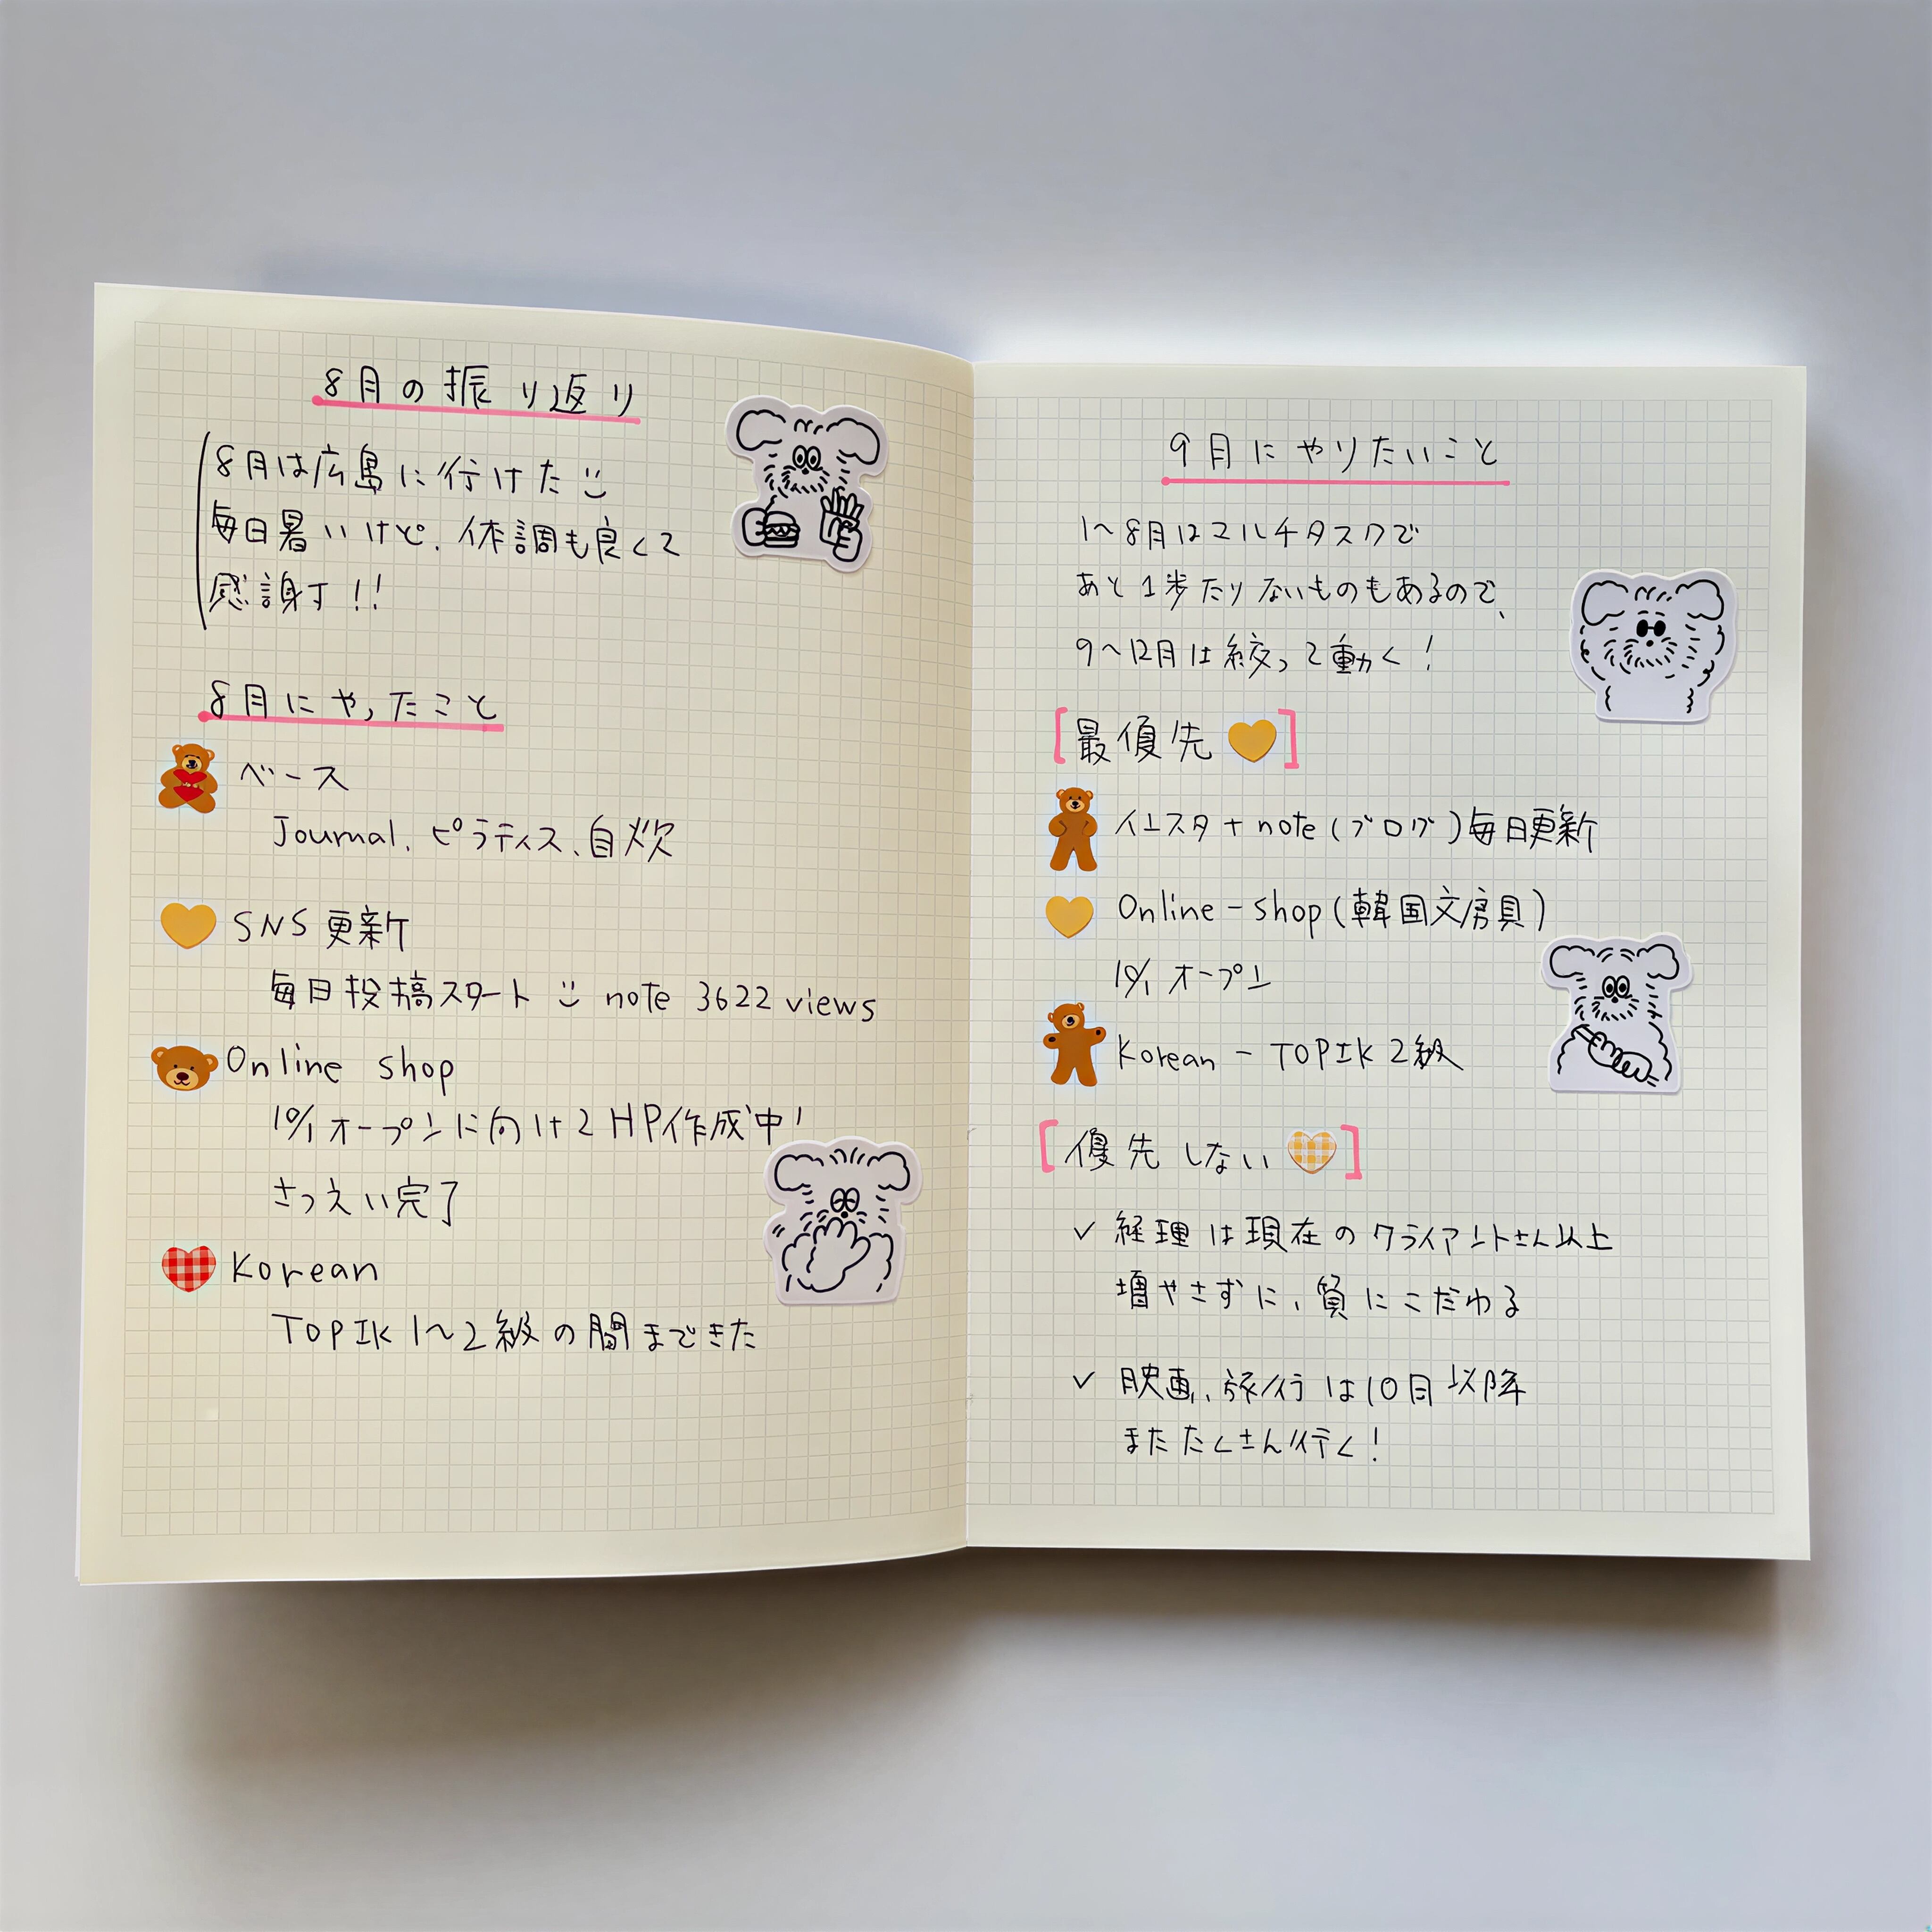 8月の振り返り
8月は広島に行けた
毎日暑いけど、体調も良くて
感謝す!!
8月にやったこと
ベース
Journal、ピラティス、自炊
SNS更新
毎日投稿スタート note 3622 views
Online shop
10/1オープンに向けてHP作成中!
さつえい完了
Korean
TOPIK 1〜2級の間まできた
9月にやりたいこと
1〜8月はマルチタスクで
あと1歩たりないものもあるので、
9〜12月は絞って動く!
[最優先]
インスタ+note(ブログ)毎日更新
Online-shop(韓国文房具)
10/1 オープン
Korean - TOPIK 2級
[優先しない]
✓ 経理は現在のクライアントさん以上
増やさずに、質にこだわる
✓ 映画、旅行は10月以降
またたくさん行く!